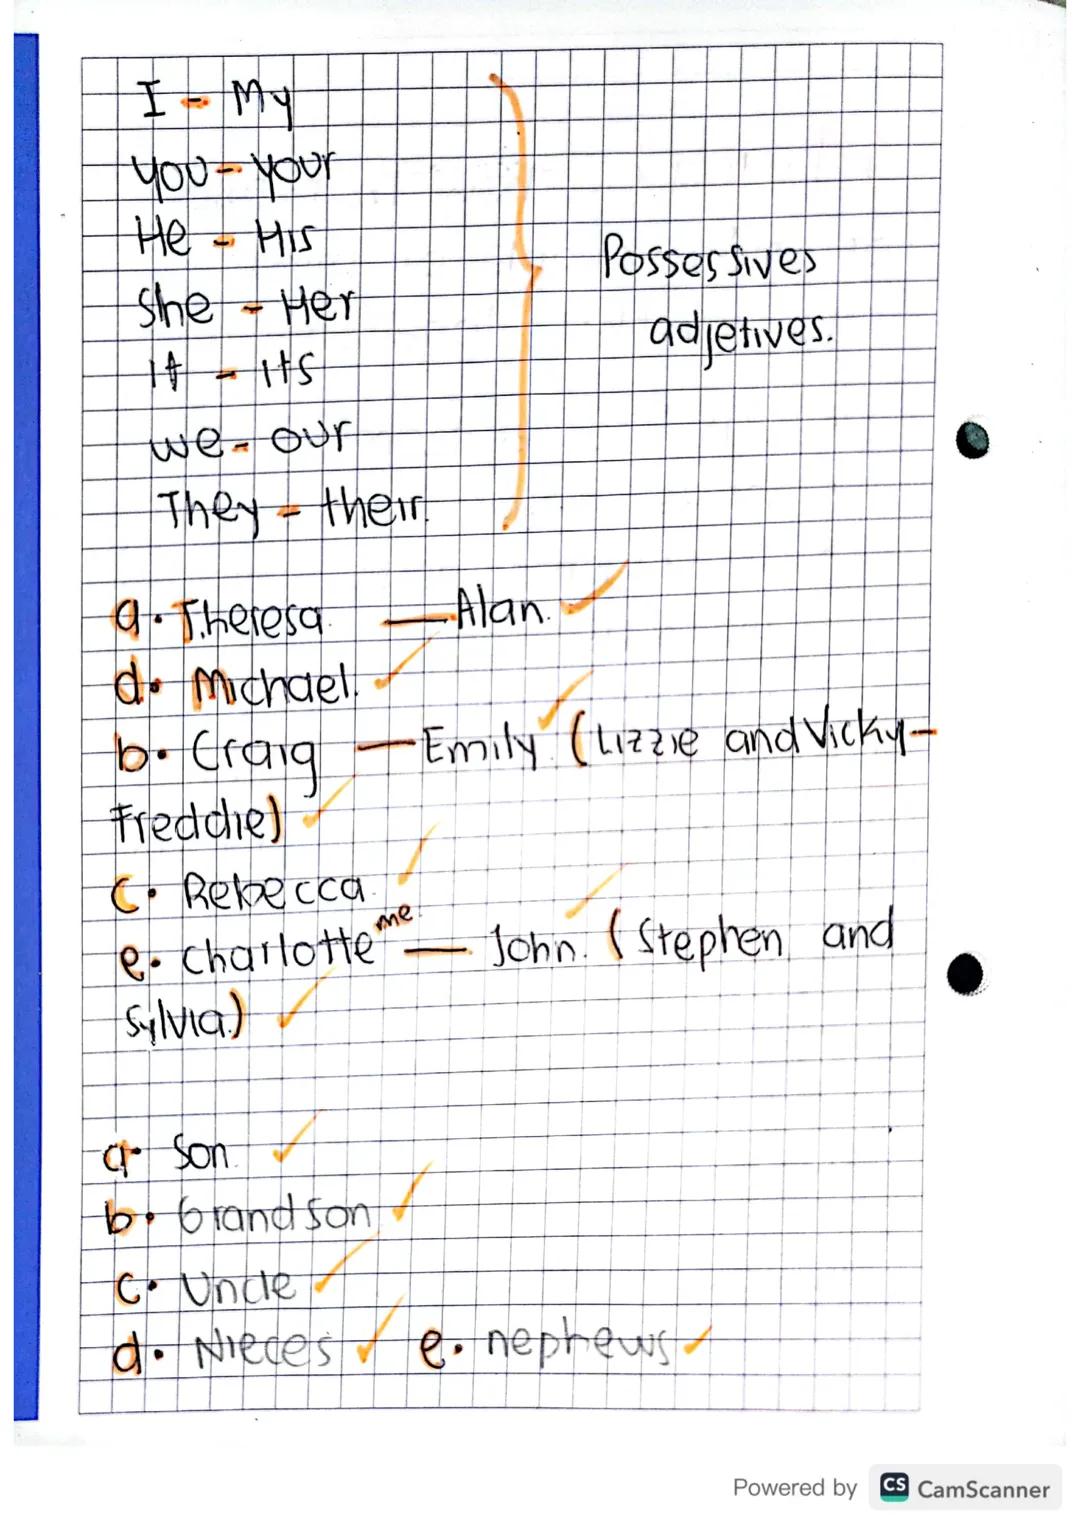 I - My
you - your
He - His
She - Her
it - its
we - our
They - their.
Possessives
adjetives.
a. Theresa. — Alan.
d. Michael.
b. Craig — Emily. (Lizzie and Vicky -
Freddie)
c. Rebecca.
me.
e. charlotte — John. (Stephen and
Sylvia.)
a. Son.
b. Grandson
c. Uncle
d. Nieces e. nephews
Powered by CS CamScanner